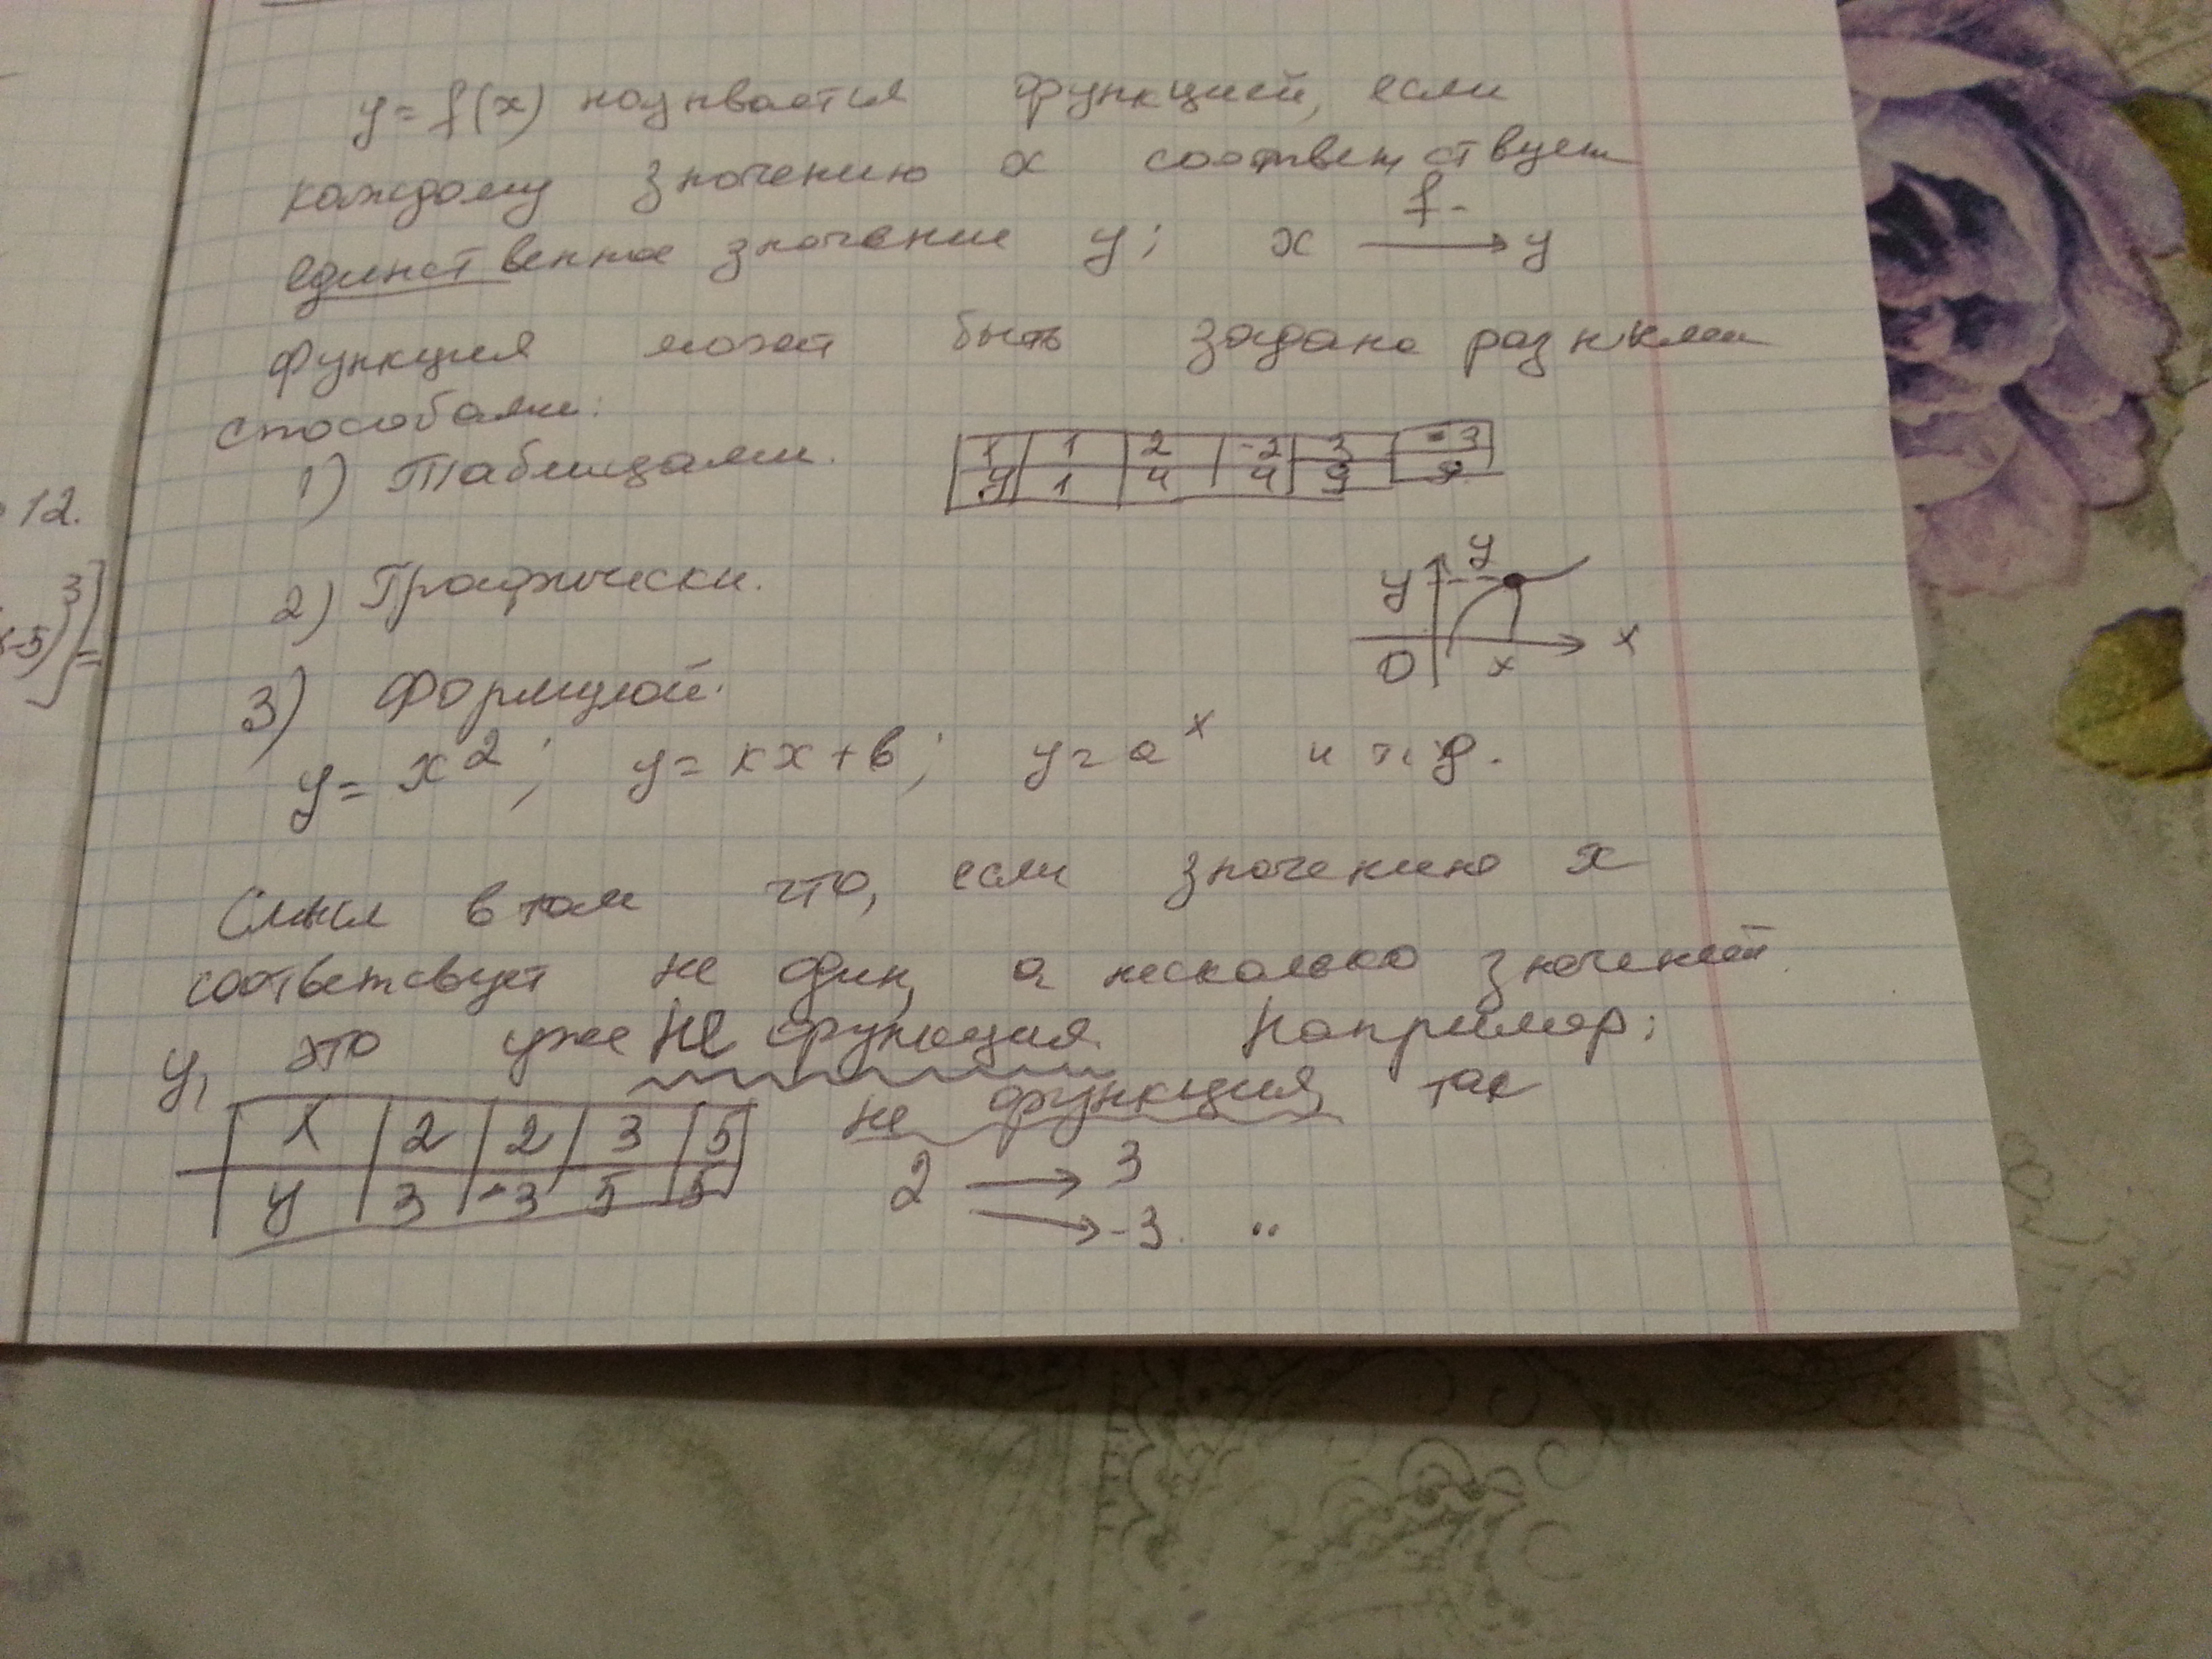 y = f(x) называется функцией, если
каждому значению x соответствует
единственное значение y; x f→ y
Функция может быть задана разными
способами:
1) Таблицами.
1 1 2 -2 3 -3
y 1 4 4 9 9
2) Графически.
y y
0 x x
3) Формулой.
y = x²; y = кx + b; y = a^x и т.д.
Смысл в том что, если значению x
соответсвует не один, а несколько значений
y, это уже не функция. Например:
x 2 2 3 5
y 3 -3 5 5
не функция, так
2 → 3
→ -3.
12.
3
x-5)]=